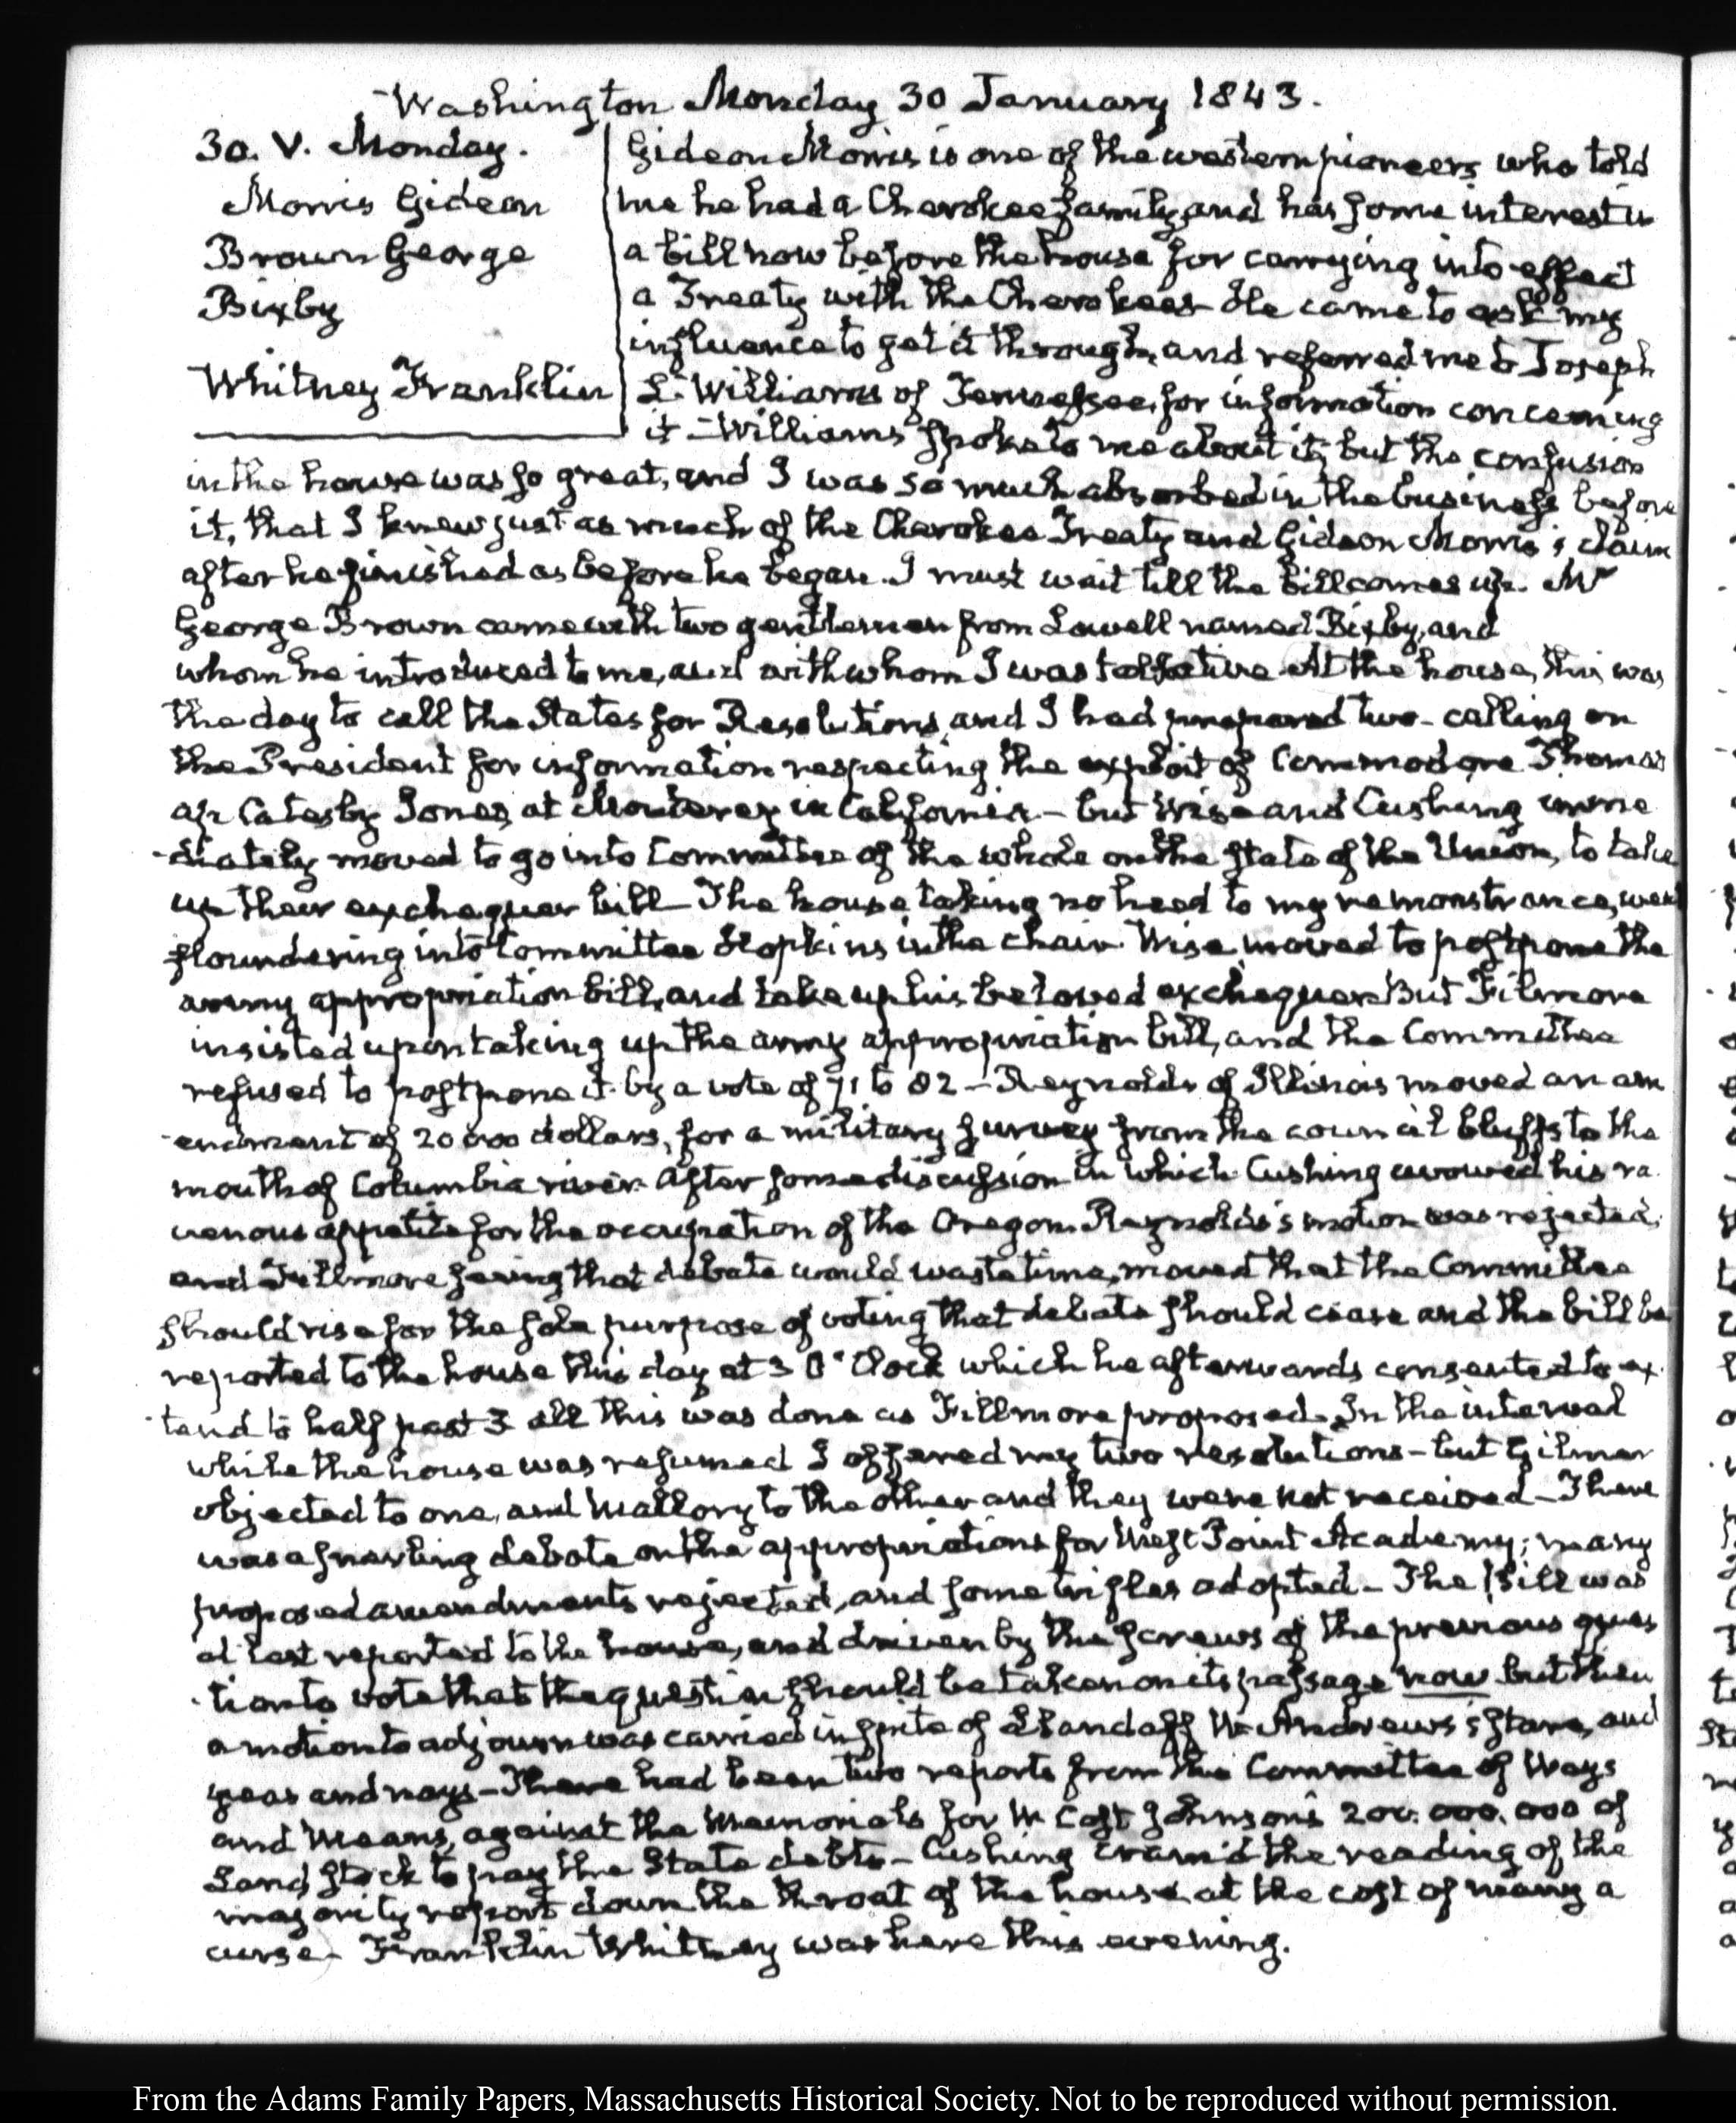 Washington Monday 30 January 1843.
30. V. Monday.
Morris Gideon
Brown George
Bixby
Whitney Franklin
Gideon Morris is one of the western pioneers who told
me he had a Cherokee family, and has some interest in
a bill now before the house for carrying into effect
a Treaty with the Cherokees He came to ask my
influence to get it through, and referred me to Joseph
L. Williams of Tennessee, for information concerning
it – Williams spoke to me about it, but the confusion
in the house was so great, and I was so much absorbed in the business before
it, that I knew just as much of the Cherokee Treaty and Gideon Morris's claim
after he finished as before he began. I must wait till the bill comes up. Mr
George Brown came with two gentlemen from Lowell named Bixby, and
whom he introduced to me, and with whom I was talkative At the house, this was
the day to call the States for Resolutions, and I had prepared two – calling on
the President for information respecting the exploit of Commodore Thomas
ap Catesby Jones, at Monterey in California – but Wise and Cushing imme
diately moved to go into Committee of the whole on the state of the Union, to take
up their exchequer bill – The house taking no heed to my remonstrance, went
floundering into Committee Hopkins in the chair. Wise moved to postpone the
army appropriation bill, and take up his beloved exchequer But Filmore
insisted upon taking up the army appropriation bill, and the Committee
refused to postpone it by a vote of 71 to 82 – Reynolds of Illinois moved an am
endment of 20 000 dollars, for a military survey from the council bluffs to the
mouth of Columbia river. After some discussion in which Cushing avowed his ra
venous appetite for the occupation of the Oregon Reynolds's motion was rejected;
and Fillmore seeing that debate would waste time, moved that the Committee
should rise for the sole purpose of voting that debate should cease and the bill be
reported to the house this day at 3 O'Clock which he afterwards consented to ex
tend to half past 3 all this was done as Fillmore proposed. In the interval
while the house was resumed I offered my two resolutions – but Gilmer
objected to one, and Mallory to the other and they were not received – There
was a snarling debate on the appropriations for West Point Academy; many
proposed amendments rejected, and some trifles adopted – The Bill was
at last reported to the house, and driven by the screws of the previous ques
tion to vote that the question should be taken on its passage now but then
a motion to adjourn was carried in spite of Landaff W. Andrews's stare, and
yeas and nays – There had been two reports from the Committee of Ways
and Means, against the Memorials for W Cost Johnson's 200.000.000 of
Land stock to pay the State debts – Cushing cramm'd the reading of the
majority report down the throat of the house at the cost of many a
curse – Franklin Whitney was here this evening.
From the Adams Family Papers, Massachusetts Historical Society. Not to be reproduced without permission.